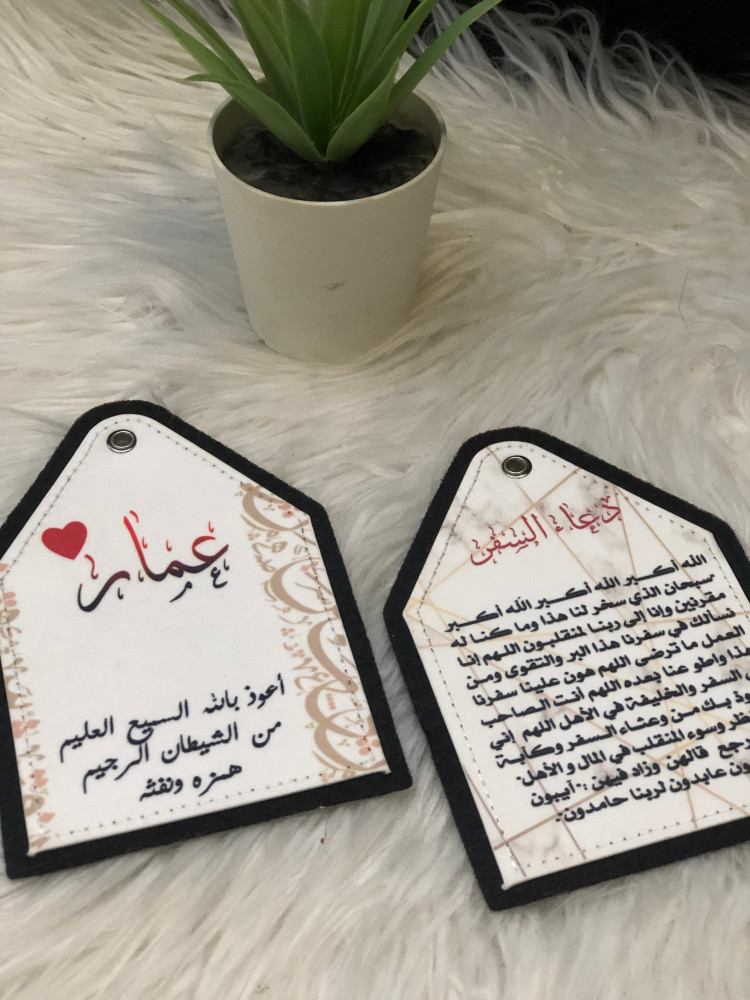 عمار
أعوذ بالله السميع العليم
من الشيطان الرجيم
همزه ونفثه
دعاء السفر
الله أكبر الله أكبر الله أكبر
سبحان الذي سخر لنا هذا وما كنا له
مقرنين وإنا إلى ربنا لمنقلبون اللهم إنا
نسألك في سفرنا هذا البر والتقوى ومن
العمل ما ترضى اللهم هون علينا سفرنا
هذا واطو عنا بعده اللهم أنت الصاحب
السفر والخليفة في الأهل اللهم إني
بك من وعثاء السفر وكآبة
وسوء المنقلب في المال و الأهل.
قالهن وزاد فيهن :- آيبون
عابدون لربنا حامدون-